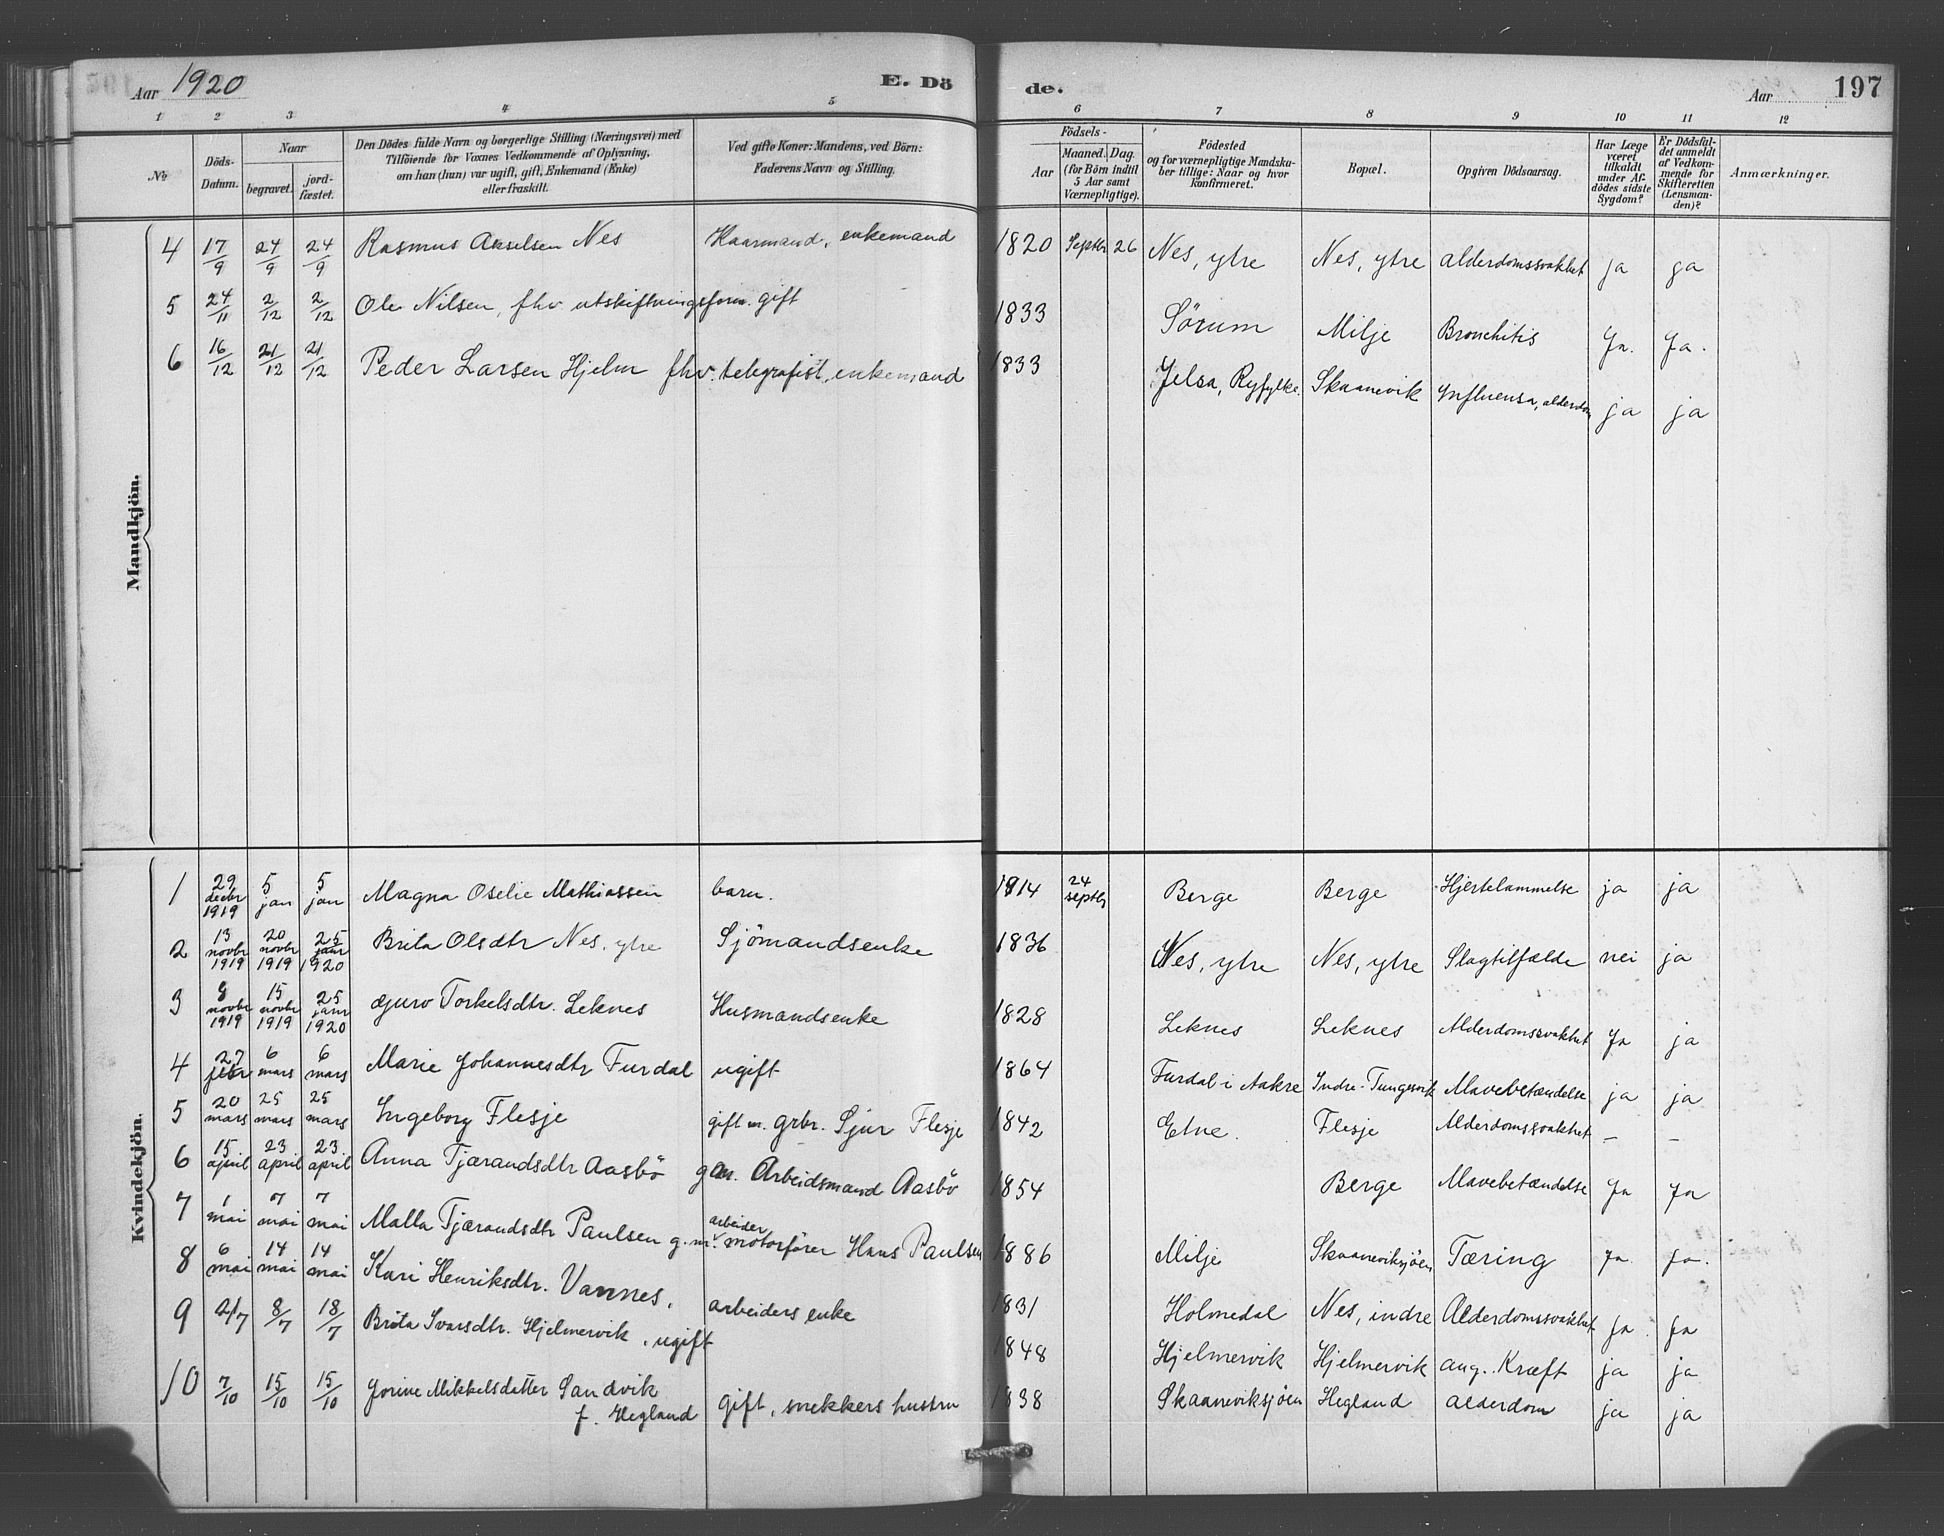 Aar 1920
E. Dö
de.
Aar
197
1 2 3 4 5 6 7 8 9 10 11 12
No
Döds-Datum.
Naar
begravet.
jord-fæstet.
Den Dödes fulde Navn og borgerlige Stilling (Næringsvei) med
Tilföiende for Voxnes Vedkommende af Oplysning,
om han (hun) var ugift, gift, Enkemand (Enke)
eller fraskilt.
Ved gifte Koner: Mandens, ved Börn:
Faderens Navn og Stilling.
Födsels-
Aar
Maaned. Dag.
(for Börn indtil
5 Aar samt
Værnepligtige).
Födested
og for værnepligtige Mandska-
ber tillige: Naar og hvor
konfirmeret.
Bopæl.
Opgiven Dödsaarsag.
Har Læge
været
tilkaldt
under Af-
dödes sidste
Sygdom?
Er Dödsfal-
det anmeldt
af Vedkom-
mende for
Skifteretten
(Lensman-
den)?
Anmærkninger.
Mandkjön.
4 17/9 24/9 24/9 Rasmus Akselsen Nes Kaarmand, enkemand 1820 Septbr 26 Nes, ytre Nes, ytre alderdomssvakhet ja ja
5 24/11 2/12 2/12 Ole Nilsen, fhv. utskiftningsform. gift 1833 Sörum Milje Bronchitis Ja. Ja.
6 16/12 21/12 21/12 Peder Larsen Hjelm fhv. telegrafist, enkemand 1833 Jelsa, Ryfylke. Skaanevik Influensa, alderdom ja ja
Kvindekjön.
1 29 decbr 1919 5 jan 5 jan Magna Oselie Mathiassen barn. 1914 24 septbr Berge Berge Hjertelammelse ja ja
2 13 novbr 1919 20 novbr 1919 25 januar 1920 Brita Olsdtr Nes, ytre Sjömandsenke 1836 Nes, ytre Nes, ytre Slagtilfælde nei ja
3 8 novbr 1919 15 novbr 1919 25 januar 1920 Gjuro Torkelsdtr. Leknes Husmandsenke 1828 Leknes Leknes Alderdomssvakhet Ja ja
4 27 febr 6 mars 6 mars Marie Johannesdtr Furdal ugift 1864 Furdal i Aakre Indre-Tungesvik Mavebetændelse ja ja
5 20 mars 25 mars 25 mars Ingeborg Flesje gift m. grbr. Sjur Flesje 1842 Etne. Flesje Alderdomssvakhet - -
6 15 april 23 april 23 april Anna Tjærandsdtr Aasbö g.m. Arbeidsmand Aasbö 1854 Berge Mavebetændelse Ja Ja
7 1 mai 7 mai 7 mai Malla Tjærandsdtr Paulsen g. m. arbeider motorförer Hans Paulsen 1886 Milje Skaaneviksjöen Tæring Ja. Ja.
8 6 mai 14 mai 14 mai Kari Henriksdtr. Vannes. arbeiders enke 1831 Holmedal Nes, indre Alderdomssvakhet Ja. Ja
9 2/7 8/7 18/7 Brita Ivarsdtr. Hjelmervik, ugift 1848 Hjelmervik Hjelmervik ang. Kræft ja ja
10 7/10 15/10 15/10 Jorine Mikkelsdatter Sandvik
f. Hegland gift, snekkers hustru 1838 Skaaneviksjöen Hegland alderdom ja ja